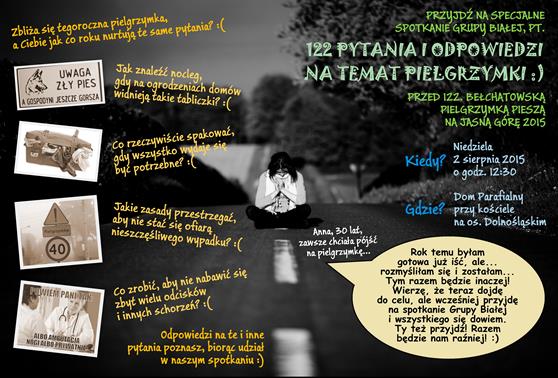 Zbliża się tegoroczna pielgrzymka,
a Ciebie jak co roku nurtują te same pytania? :(
UWAGA
ZŁY PIES
A GOSPODYNI JESZCZE GORSZA
Jak znaleźć nocleg,
gdy na ogrodzeniach domów
widnieją takie tabliczki? :(
Co rzeczywiście spakować,
gdy wszystko wydaje się
być potrzebne? :(
Pielgrzymka
40
Jakie zasady przestrzegać,
aby nie stać się ofiarą
nieszczęśliwego wypadku? :(
POWIEM PANI TAK
ALBO AMPUTACJA
NOGI ALBO PRYWATNIE
Co zrobić, aby nie nabawić się
zbyt wielu odcisków
i innych schorzeń? :(
Odpowiedzi na te i inne
pytania poznasz, biorąc udział
w naszym spotkaniu :)
PRZYJDŹ NA SPECJALNE
SPOTKANIE GRUPY BIAŁEJ, PT.
122 PYTANIA I ODPOWIEDZI
NA TEMAT PIELGRZYMKI :)
PRZED 122. BEŁCHATOWSKĄ
PIELGRZYMKĄ PIESZĄ
NA JASNĄ GÓRĘ 2015
Kiedy?
Niedziela
2 sierpnia 2015
o godz. 12:30
Gdzie?
Dom Parafialny
przy kościele
na os. Dolnośląskim
Anna, 30 lat,
zawsze chciała pójść
na pielgrzymkę...
Rok temu byłam
gotowa już iść, ale...
rozmyśliłam się i zostałam...
Tym razem będzie inaczej!
Wierzę, że teraz dojdę
do celu, ale wcześniej przyjdę
na spotkanie Grupy Białej
i wszystkiego się dowiem.
Ty też przyjdź! Razem
będzie nam raźniej! :)